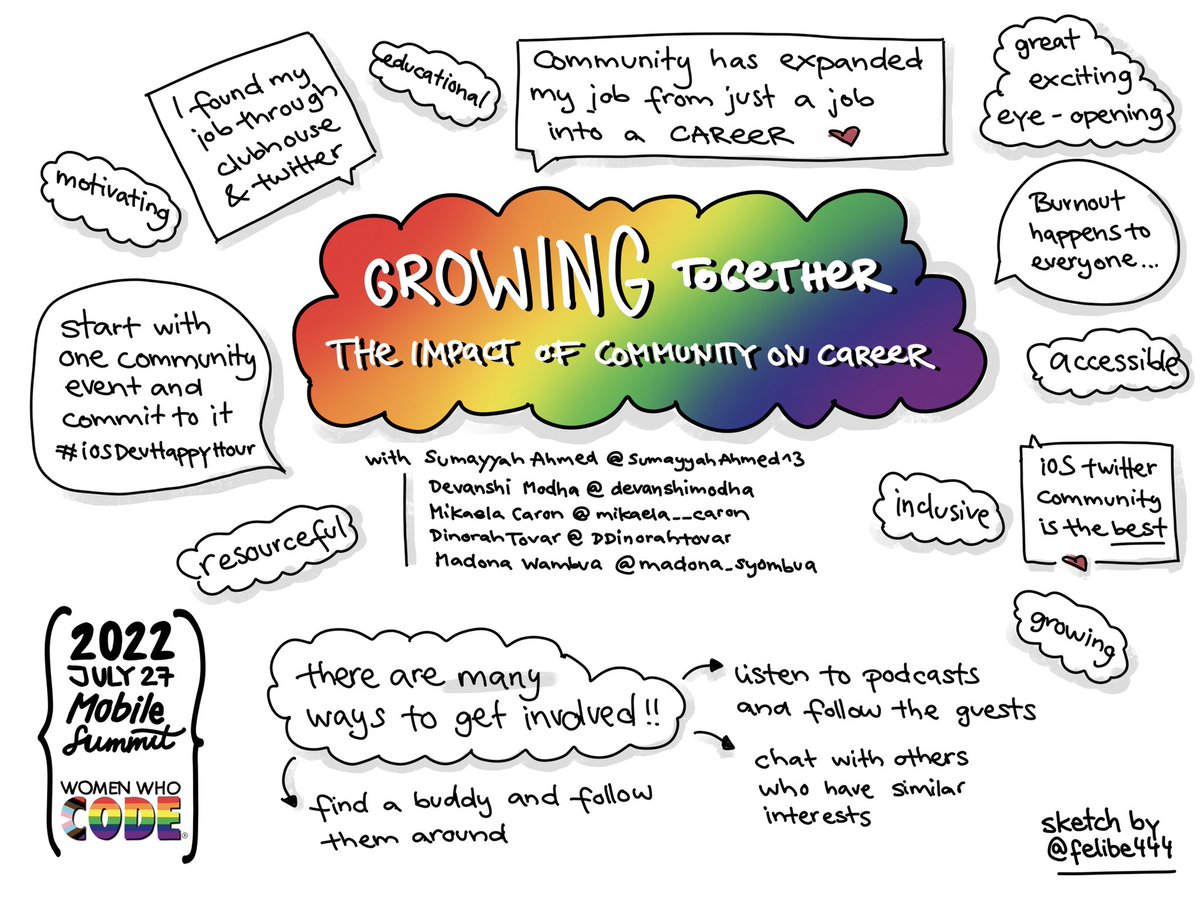 I found my
job through
clubhouse
& twitter
educational
Community has expanded
my job from just a job
into a CAREER
great
exciting
eye-opening
motivating
Burnout
happens to
everyone...
GROWING TOGETHER
THE IMPACT OF COMMUNITY ON CAREER
start with
one community
event and
commit to it
#iosDevHappyHour
accessible
with Sumayyah Ahmed @SumayyahAhmed13
Devanshi Modha @devanshimodha
Mikaela Caron @mikaela__caron
Dinorah Tovar @DDinorahtovar
Madona Wambua @madona_syombua
inclusive
iOS twitter
community
is the best
resourceful
growing
2022
JULY 27
Mobile
Summit
WOMEN WHO
CODE
there are many
ways to get involved!!
find a buddy and follow
them around
listen to podcasts
and follow the guests
chat with others
who have similar
interests
sketch by
@felibe444